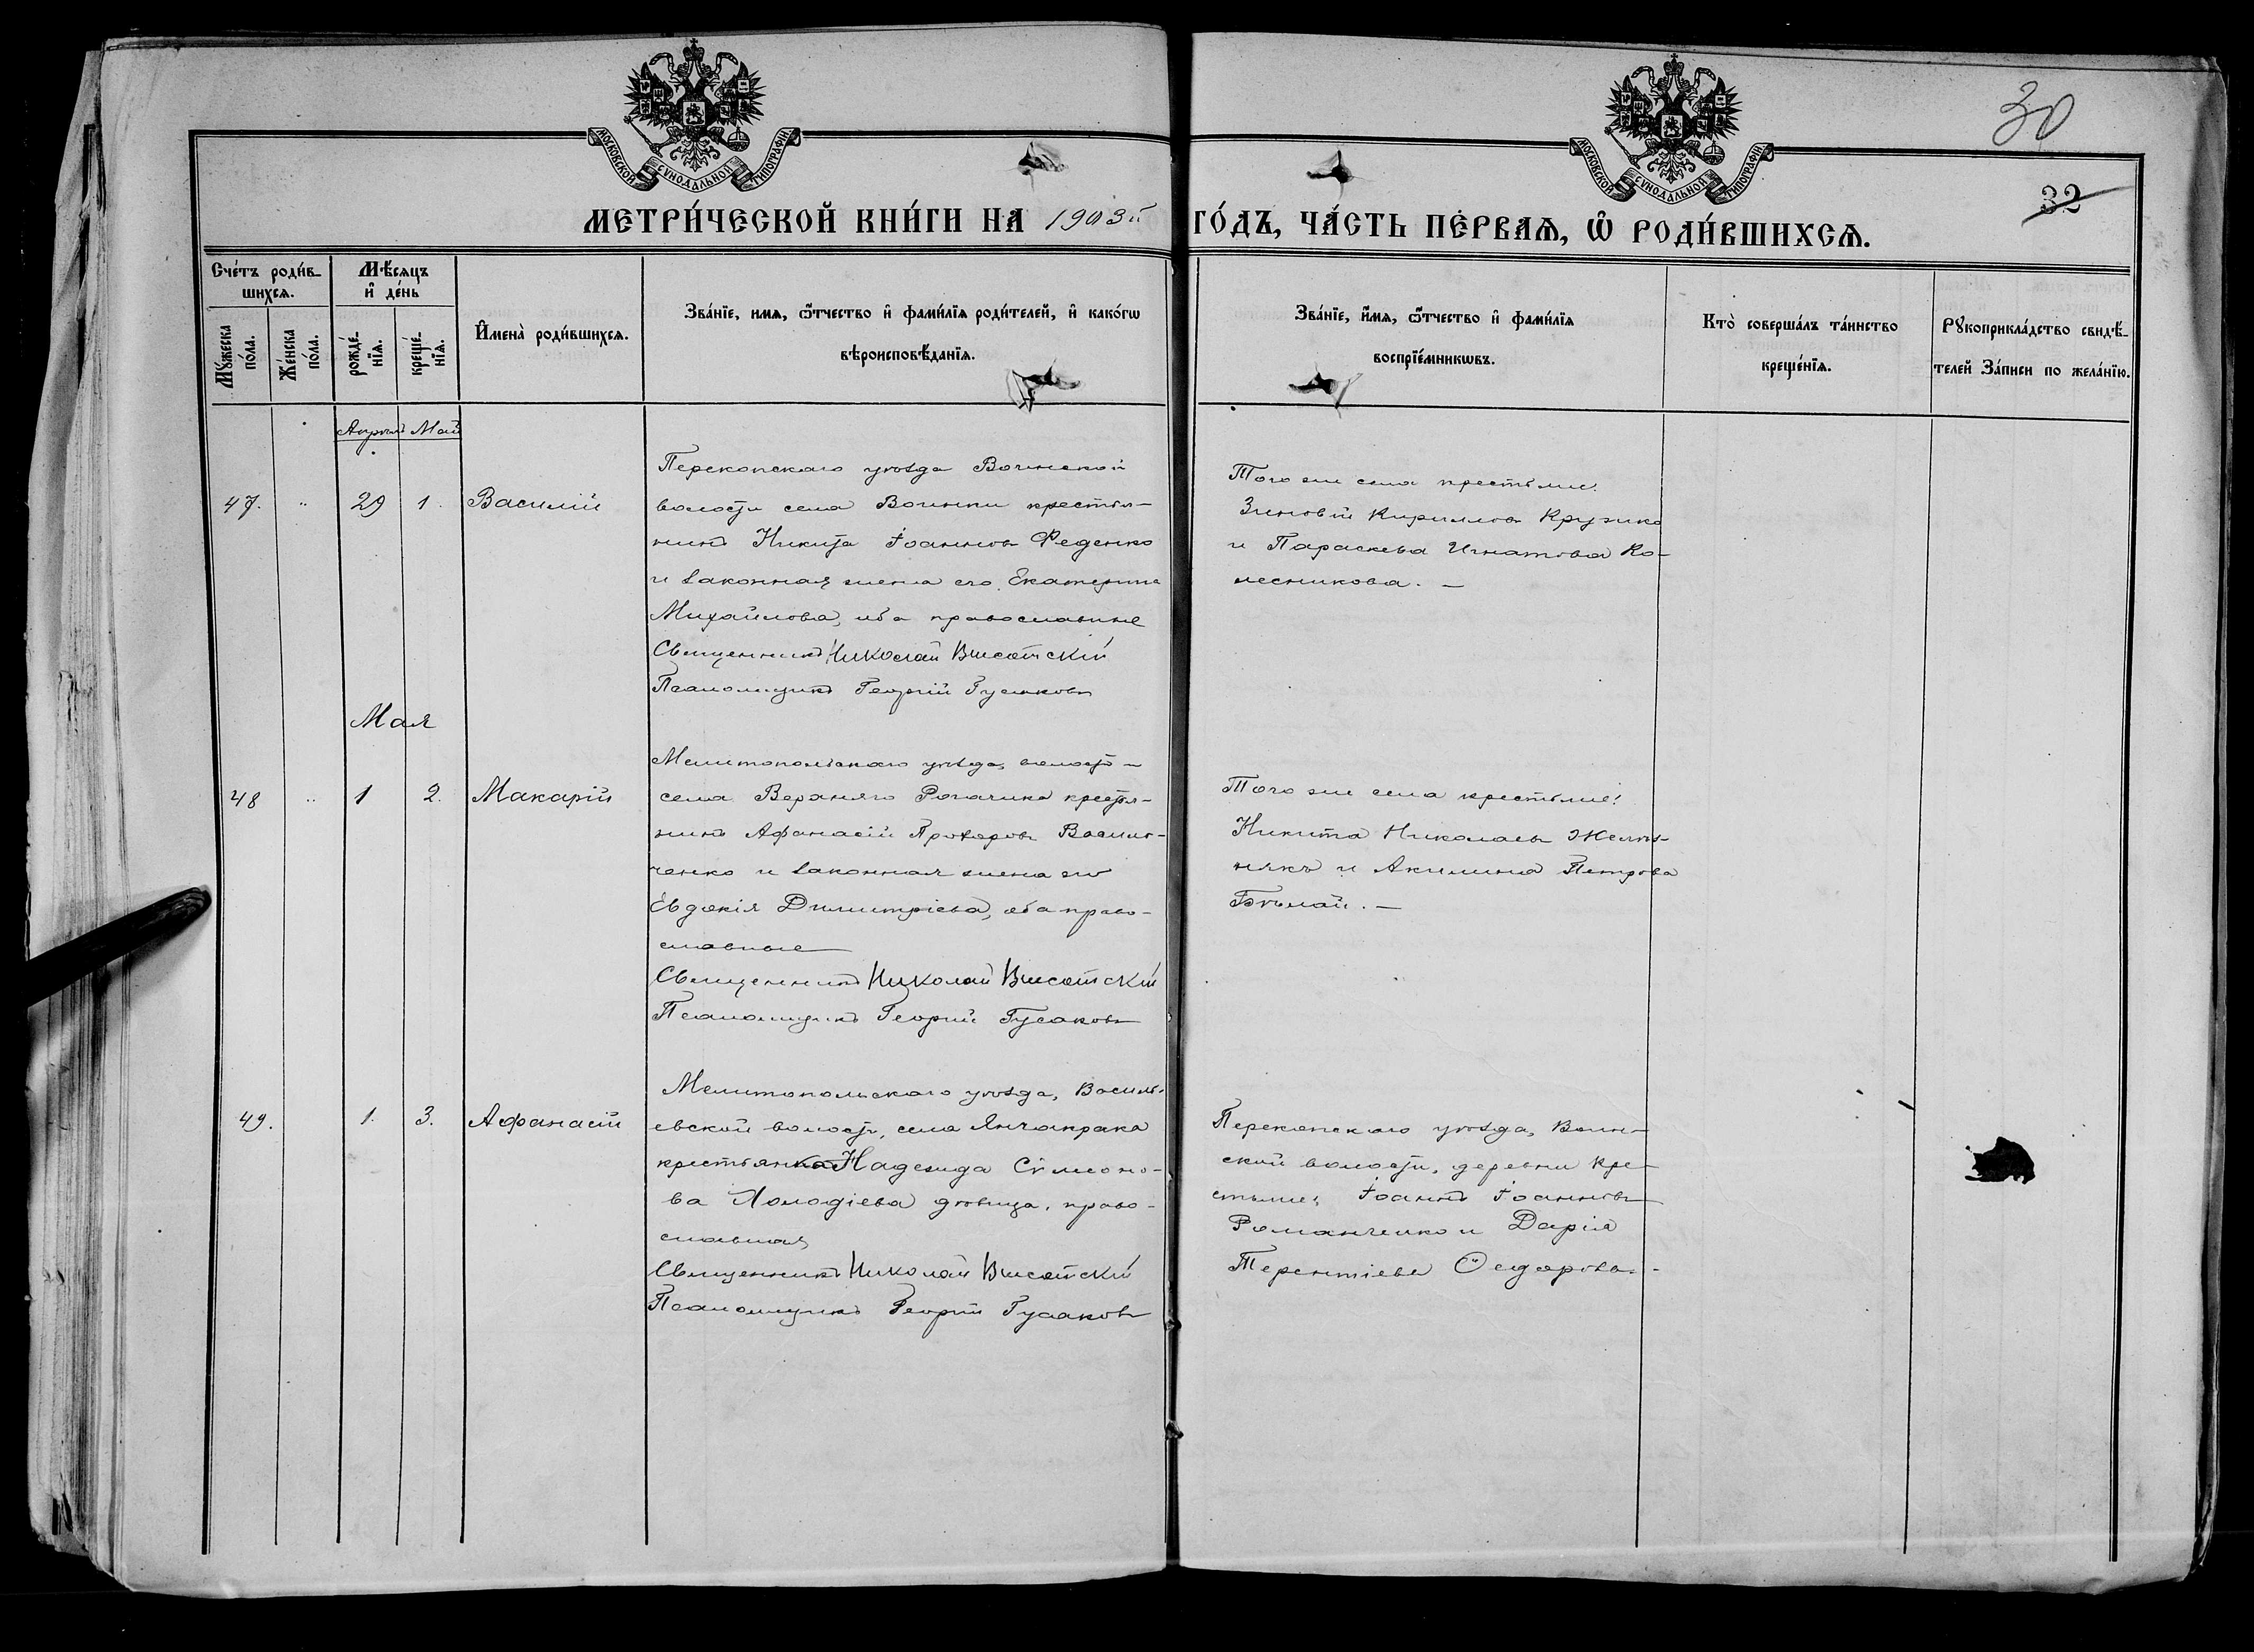 30
32
МОСКОВСКОЙ СѴНОДАЛЬНОЙ ТИПОГРАФІИ
МОСКОВСКОЙ СѴНОДАЛЬНОЙ ТИПОГРАФІИ
МЕТРИ́ЧЕСКОЙ КНИ́ГИ НА 1903й ГО́ДЪ, ЧА́СТЬ ПЕ́РВАѦ, Ѽ РОДИ́ВШИХСѦ.
Сче́тъ роди́в-
шихсѧ.
Мꙋжеска по́ла.
Же́нска по́ла.
Мѣ́сѧцъ
и҆ де́нь
рожде́-
нїѧ.
креще́-
нїѧ.
И҆мена̀ роди́вшихсѧ.
Зва́нїе, имѧ, ѻ҆́тчество и҆ фами́лїѧ роди́телей, и҆ како́гѡ
вѣроисповѣ́данїѧ.
Зва́нїе, и҆́мѧ, ѻ҆́тчество и҆ фами́лїѧ
воспрїе́мникѡвъ.
Кто̀ соверша́лъ та́инство
креще́нїѧ.
Рꙋкоприкла́дство свидѣ́-
телей За́писи по жела́нїю.
Апрѣль Май
47. " 29 1. Василій
Перекопскаго уѣзда Воинской
волости села Воинки крестья-
нинъ Никита Іоанновъ Феденко
и законная жена его Екатерина
Михайлова, оба православные
Священникъ Николай Высотскій
Псаломщикъ Георгій Гусаковъ
Того же села крестьяне:
Зиновій Кирилловъ
и Параскева Игнатова Ко-
лесникова. —
Мая
48 " 1 2. Макарій
Мелитопольскаго уѣзда, волости и
села Верхняго Рогачика крестья-
нинъ Афанасій Прохоровъ Василь-
ченко и законная жена его
Евдокія Димитріева, оба право-
славные
Священникъ Николай Высотскій
Псаломщикъ Георгій Гусаковъ
Того же села крестьяне:
Никита Николаевъ Желѣз-
някъ и Акилина Петрова
Бѣлай. —
49. 1. 3. Афанасій
Мелитопольскаго уѣзда, Василь-
евской волости, села Янчокрака
крестьянка Надежда Сѵмеоно-
ва Холодіева дѣвица, право-
славная
Священникъ Николай Высотскій
Псаломщикъ Георгій Гусаковъ
Перекопскаго уѣзда, Воин-
ской волости, деревни кре-
стьяне: Іоаннъ Іоанновъ
Романченко и Дарія
Терентіева